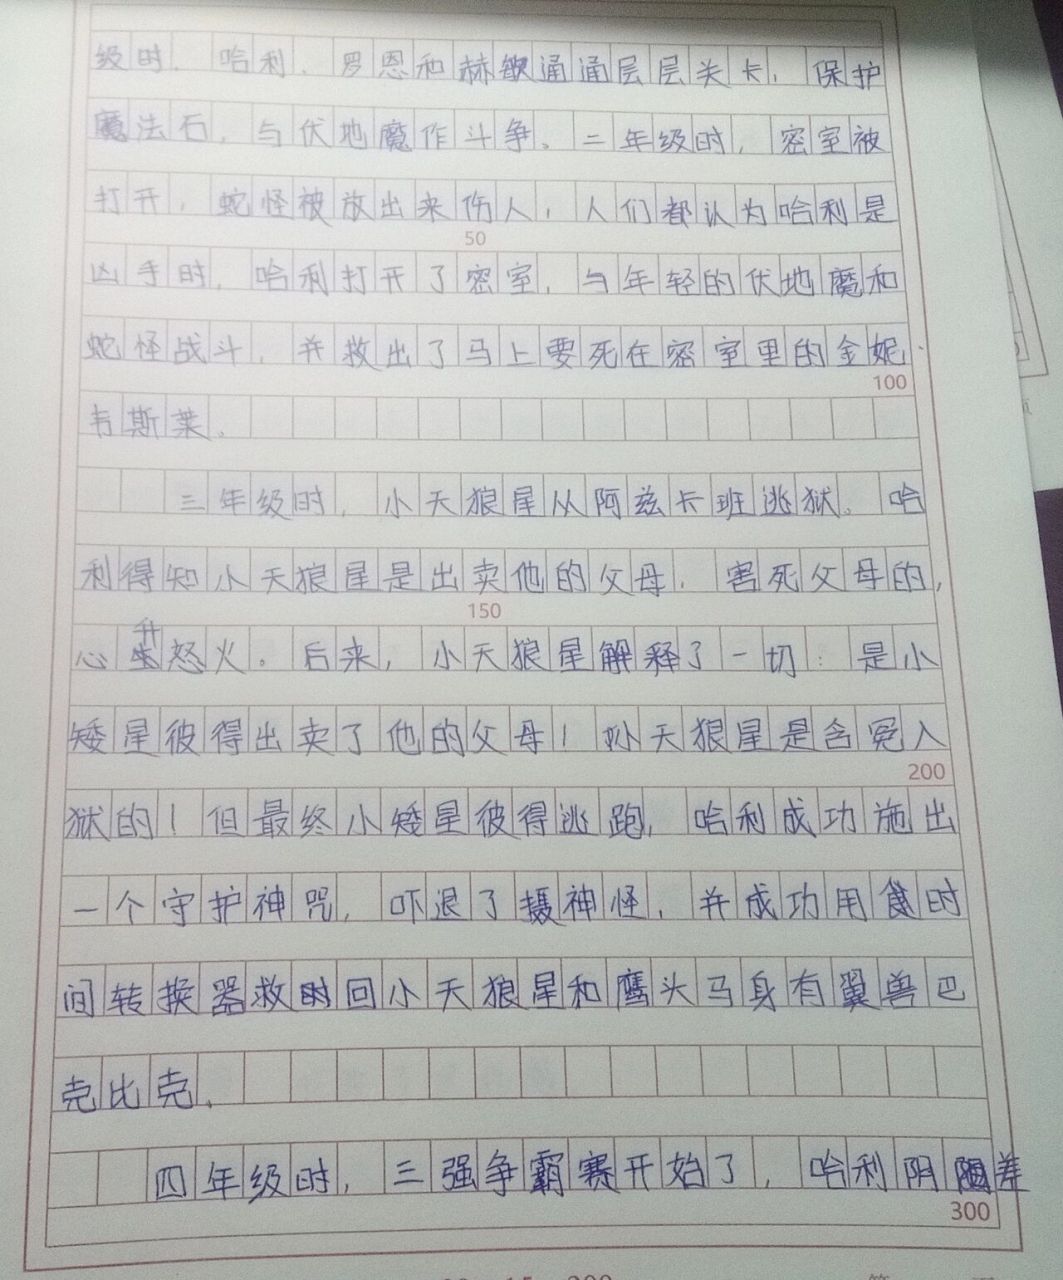 级时，哈利、罗恩和赫敏通通层层关卡，保护
魔法石，与伏地魔作斗争。二年级时，密室被
打开，蛇怪被放出来伤人，人们都认为哈利是
50
凶手时，哈利打开了密室，与年轻的伏地魔和
蛇怪战斗，并救出了马上要死在密室里的金妮·
100
韦斯莱。
三年级时，小天狼星从阿兹卡班逃狱。哈
利得知小天狼星是出卖他的父母，害死父母的，
150
心升怒火。后来，小天狼星解释了一切：是小
矮星彼得出卖了他的父母！小天狼星是含冤入
200
狱的！但最终小矮星彼得逃跑，哈利成功施出
一个守护神咒，吓退了摄神怪，并成功用时
间转换器救回小天狼星和鹰头马身有翼兽巴
克比克。
四年级时，三强争霸赛开始了，哈利阴差
300